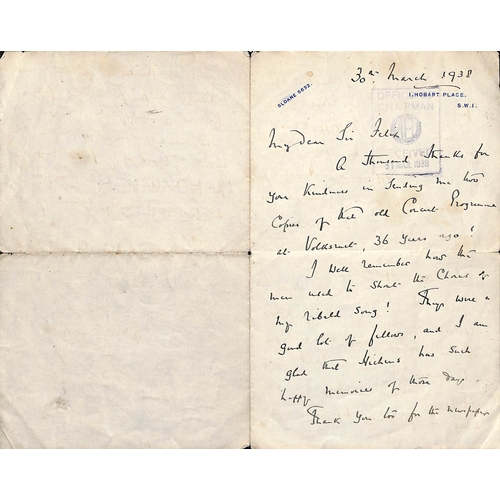 30th March 1938
SLOANE 5632.
1, HOBART PLACE,
S.W.1.
OFFICE
CHAIRMAN
31 MAR 1938
My dear Sir Felix
A thousand thanks for
your kindness in sending me two
Copies of that old Concert Programme
at Volksrust, 36 years ago!
I well remember how the
men used to shout the Chorus of
my ribald song! They were a
good lot of fellows, and I am
glad that Hichens has such
happy memories of those days.
Thank you too for the newspaper